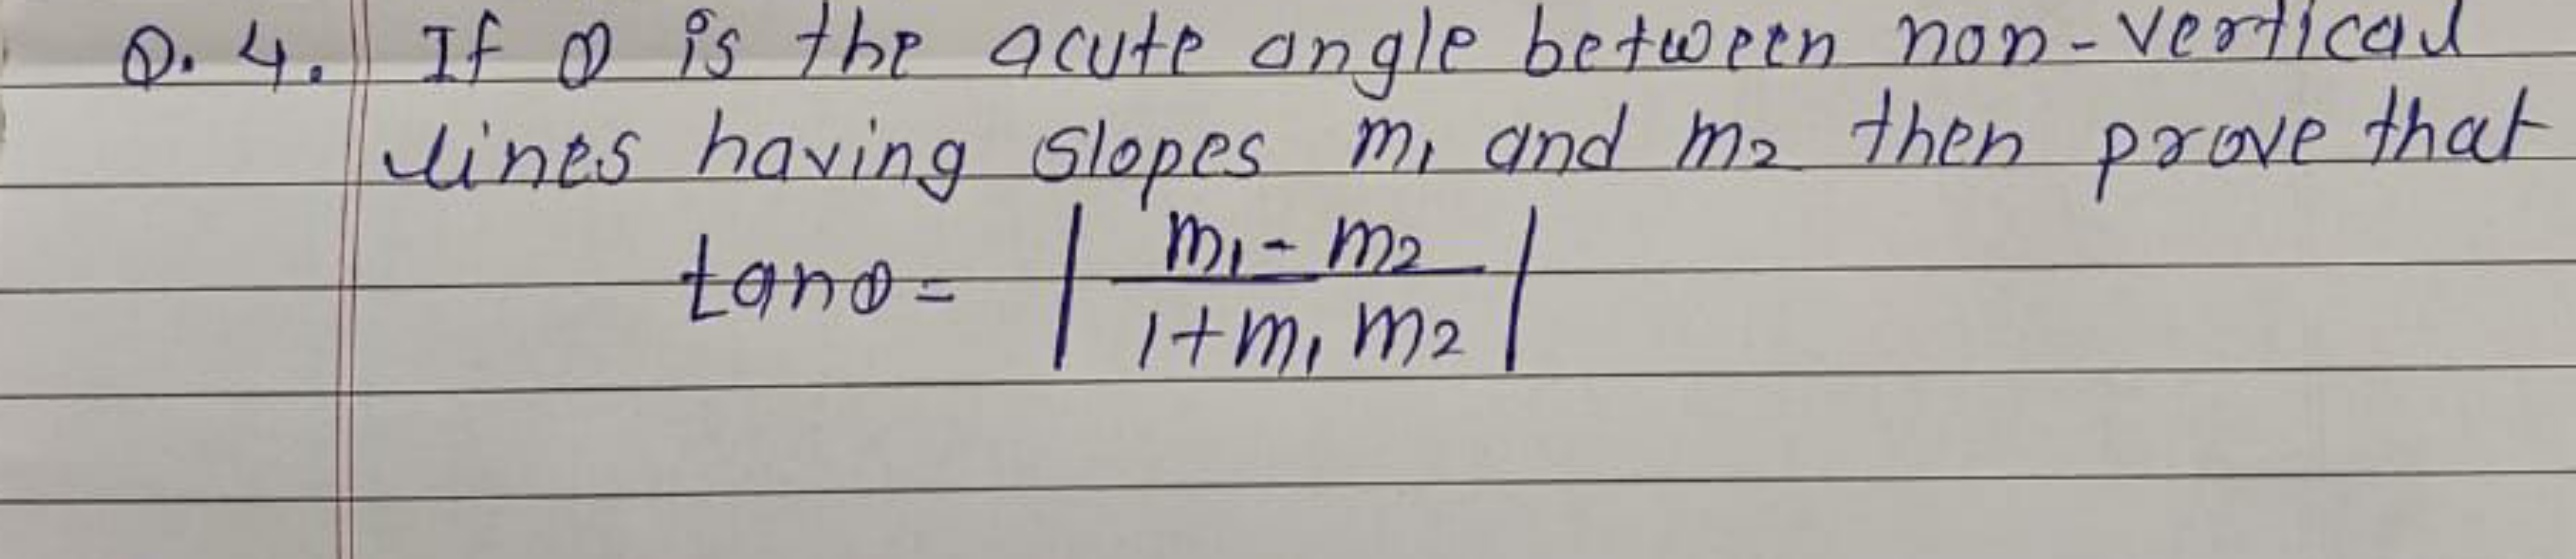 Q. 4. If θ is the acute angle between non-vertical
lines having slopes m₁ and m₂ then prove that
tanθ = | m₁ - m₂ / 1 + m₁ m₂ |